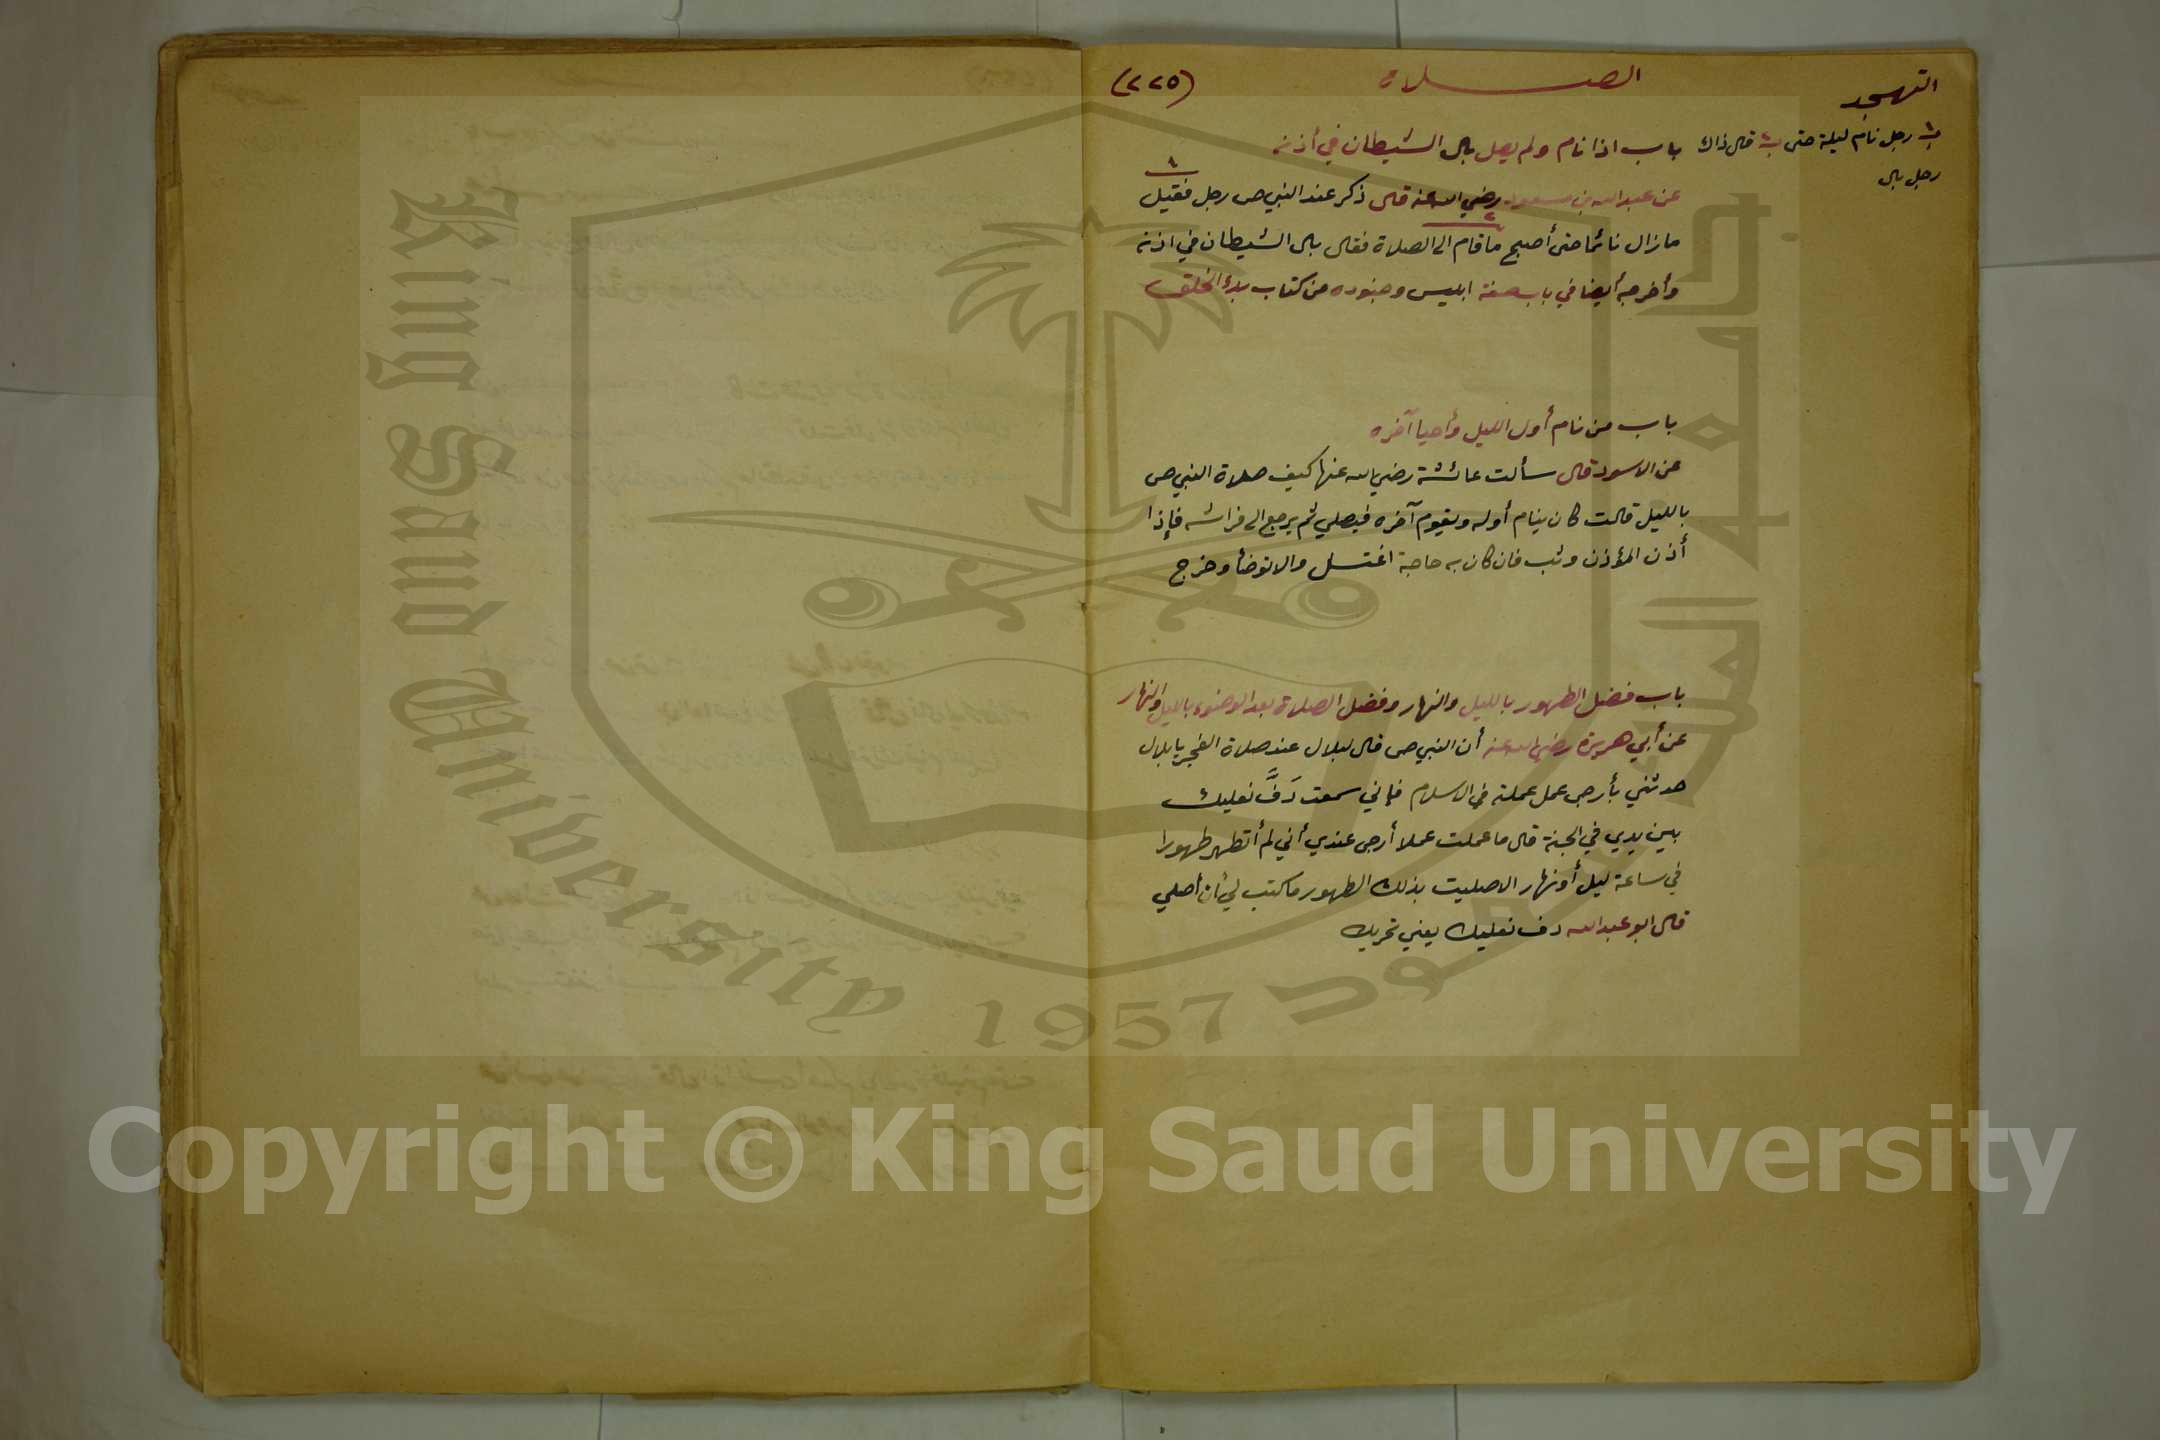 التهجد
الصلاة
(٢٢٥)
١ رجل نام ليلة حتى ٢ قال ذاك
رجل بال
باب اذا نام ولم يصل بال الشيطان في أذنه
١
عن عبدالله بن مسعود رضي الله عنه قال ذكر عند النبي ص رجل فقيل
٢
مازال نائما حتى أصبح ما قام الى الصلاة فقال بال الشيطان في اذنه
وأخرجه أيضا في باب صفة ابليس وجنوده من كتاب بدء الخلق
باب من نام أول الليل وأحيا آخره
عن الاسود قال سألت عائشة رضي الله عنها كيف صلاة النبي ص
بالليل قالت كان ينام أوله ويقوم آخره فيصلي ثم يرجع الى فراشه فإذا
أذن المؤذن وثب فان كان به حاجة اغتسل والا توضأ وخرج
باب فضل الطهور بالليل والنهار وفضل الصلاة بعد الوضوء بالليل والنهار
عن أبي هريرة رضي الله عنه أن النبي ص قال لبلال عند صلاة الفجر يا بلال
حدثني بأرجى عمل عملته في الاسلام فإني سمعت دَفَّ نعليك
بين يدي في الجنة قال ما عملت عملا أرجى عندي أني لم أتطهر طهورا
في ساعة ليل أو نهار الا صليت بذلك الطهور ما كتب لي أن أصلي
قال ابو عبدالله دف نعليك يعني تحريك
King Saud University
1957
جامعة الملك سعود
Copyright © King Saud University